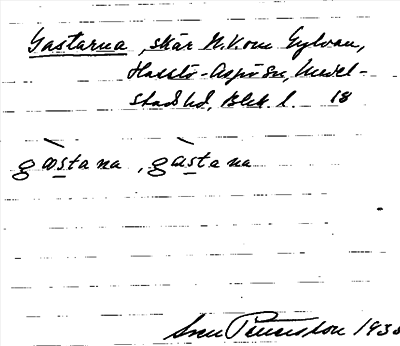 Gastarna, skär N.V. om Gylvan,
Hasslö-Aspö sn, Medel-
stads hd, Blek. l. 18
gàstana, gàstana
Sven Pettersson 193